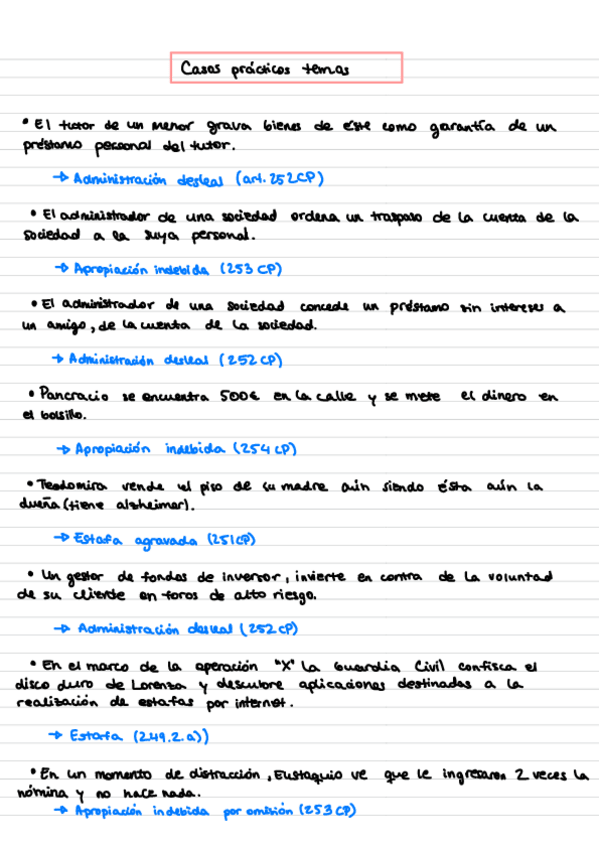 Casos prácticos temas
• El tutor de un menor grava bienes de éste como garantía de un
préstamo personal del tutor.
→ Administración desleal (art. 252 CP)
• El administrador de una sociedad ordena un traspaso de la cuenta de la
sociedad a la suya personal.
→ Apropiación indebida (253 CP)
• El administrador de una sociedad concede un préstamo sin intereses a
un amigo, de la cuenta de la sociedad.
→ Administración desleal (252 CP)
• Pancracio se encuentra 500€ en la calle y se mete el dinero en
el bolsillo.
→ Apropiación indebida (254 CP)
• Teodomira vende el piso de su madre aún siendo ésta aún la
dueña (tiene alzheimer).
→ Estafa agravada (251CP)
• Un gestor de fondos de inversor, invierte en contra de la voluntad
de su cliente en foros de alto riesgo.
→ Administración desleal (252 CP)
• En el marco de la operación "X" la Guardia Civil confisca el
disco duro de Lorenza y descubre aplicaciones destinadas a la
realización de estafas por internet.
→ Estafa (249.2.a))
• En un momento de distracción, Eustaquio ve que le ingresaron 2 veces la
nómina y no hace nada.
→ Apropiación indebida por omisión (253 CP)